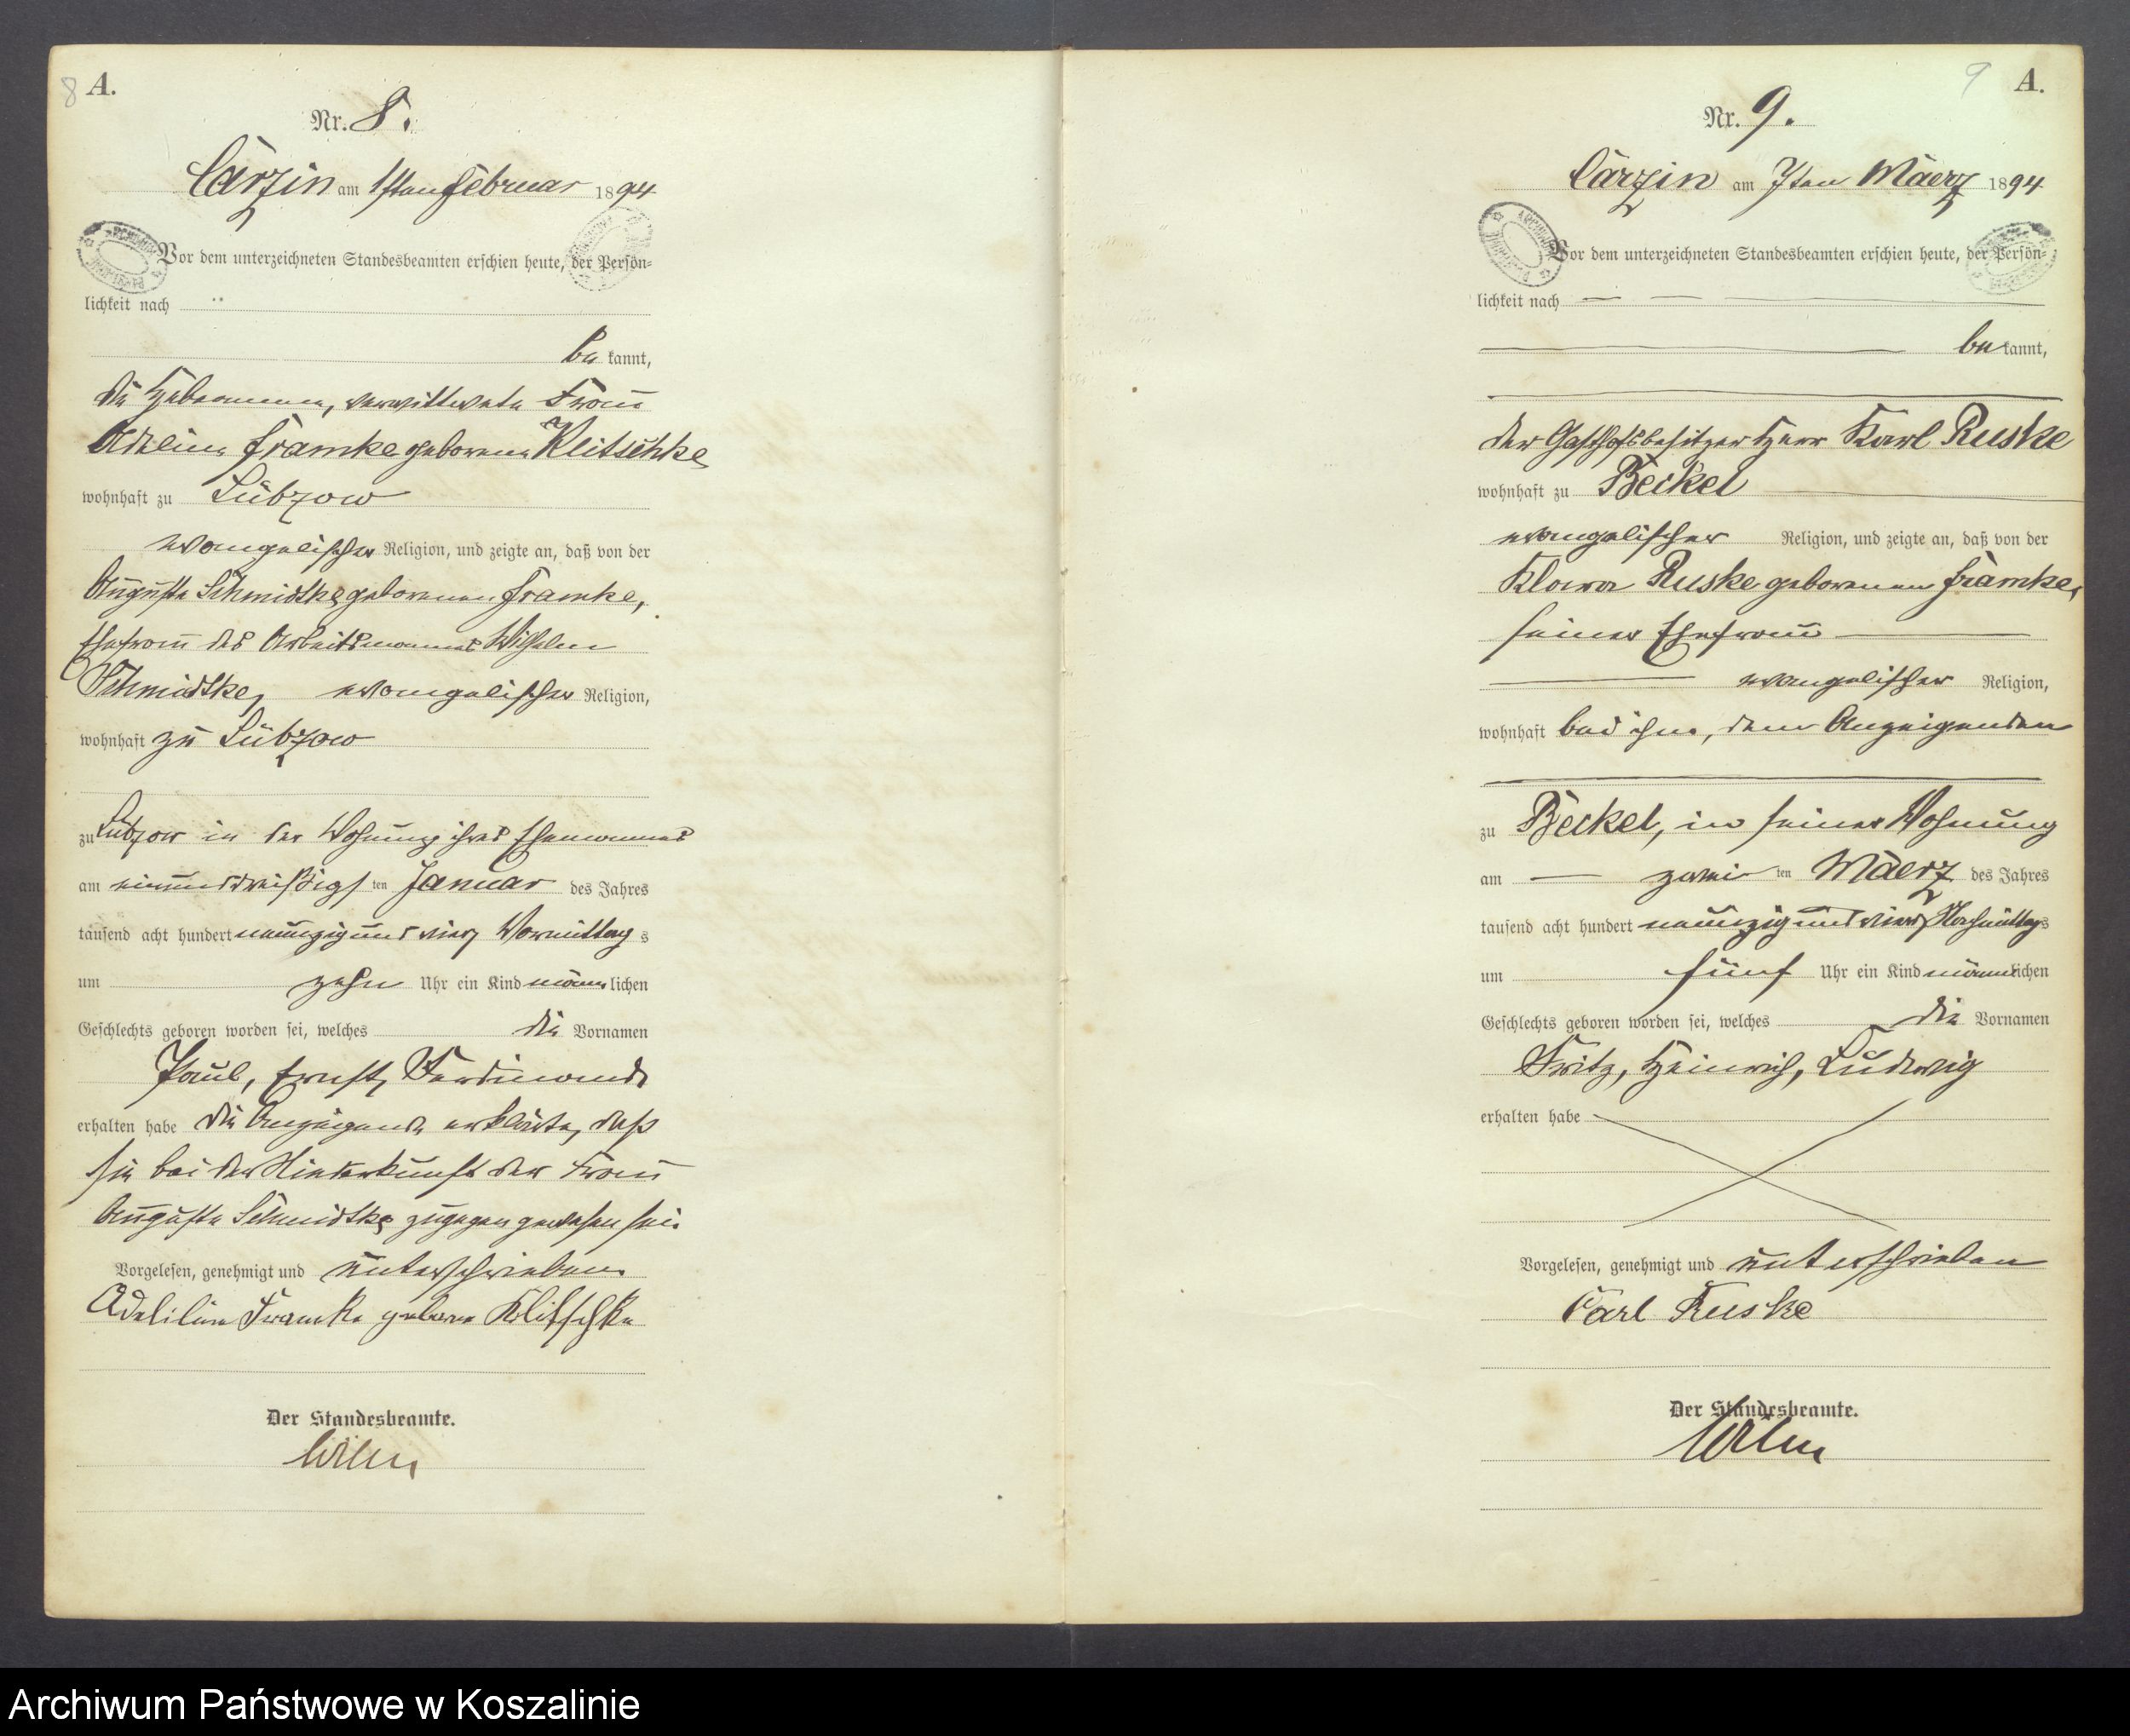 8 A.
Nr. 8.
Carzin am 1sten Februar 1894
Vor dem unterzeichneten Standesbeamten erschien heute, der Persön-
lichkeit nach
be kannt,
die Hebeamme, verwittwete Frau
Adeline Framke geborene Klitschke
wohnhaft zu Lübzow
evangelischer Religion, und zeigte an, daß von der
Auguste Schmidtke geborenen Framke,
Ehefrau des Arbeitsmannes Wilhelm
Schmidtke, evangelischer Religion,
wohnhaft zu Lübzow
zu Lübzow in der Wohnung ihres Ehemannes
am einunddreißigs ten Januar des Jahres
tausend acht hundert neunzig und vier Vormittag s
um zehn Uhr ein Kind männ lichen
Geschlechts geboren worden sei, welches die Vornamen
Paul, Ernst, Ferdinand
erhalten habe die Anzeigende erklärte, daß
sie bei der Niederkunft der Frau
Auguste Schmidtke zugegen gewesen sei.
Vorgelesen, genehmigt und unterschrieben
Framke geborne Klitschke
Der Standesbeamte.
9 A.
Nr. 9.
Carzin am 7ten Maerz 1894
Vor dem unterzeichneten Standesbeamten erschien heute, der Persön-
lichkeit nach
be kannt,
der Gasthofsbesitzer Herr Karl Ruske
wohnhaft zu Beckel
evangelischer Religion, und zeigte an, daß von der
Klara Ruske geborenen Framke,
seiner Ehefrau
evangelischer Religion,
wohnhaft bei ihm, dem Anzeigenden
zu Beckel, in seiner Wohnung
am zwei ten Maerz des Jahres
tausend acht hundert neunzig und vier Nachmittags
um fünf Uhr ein Kind männlichen
Geschlechts geboren worden sei, welches die Vornamen
Fritz, Heinrich, Ludwig
erhalten habe
Vorgelesen, genehmigt und unterschrieben
Carl Ruske
Der Standesbeamte.
Archiwum Państwowe w Koszalinie